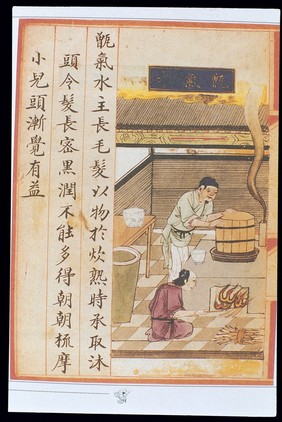 甑氣水
甑氣水主長毛髮以物於炊熟時承取沐
頭令髮長密黑潤不能多得朝朝梳摩
小兒頭漸覺有益